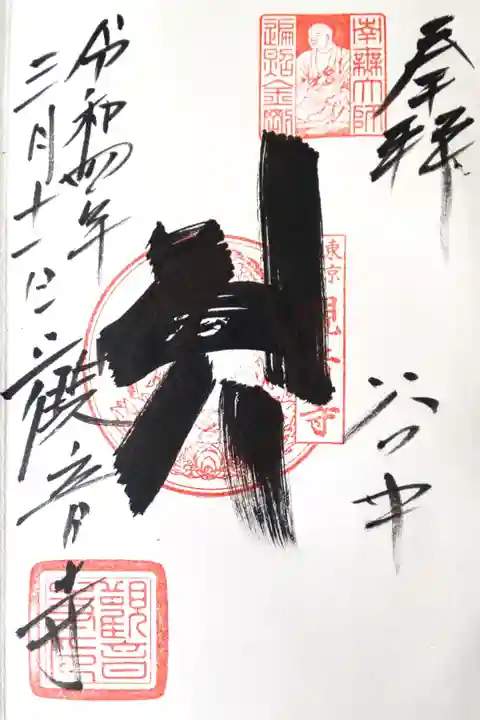 奉拝
谷中
南無大師
遍照金剛
東京
寺
令和四年
三月十一日
観音寺
觀音